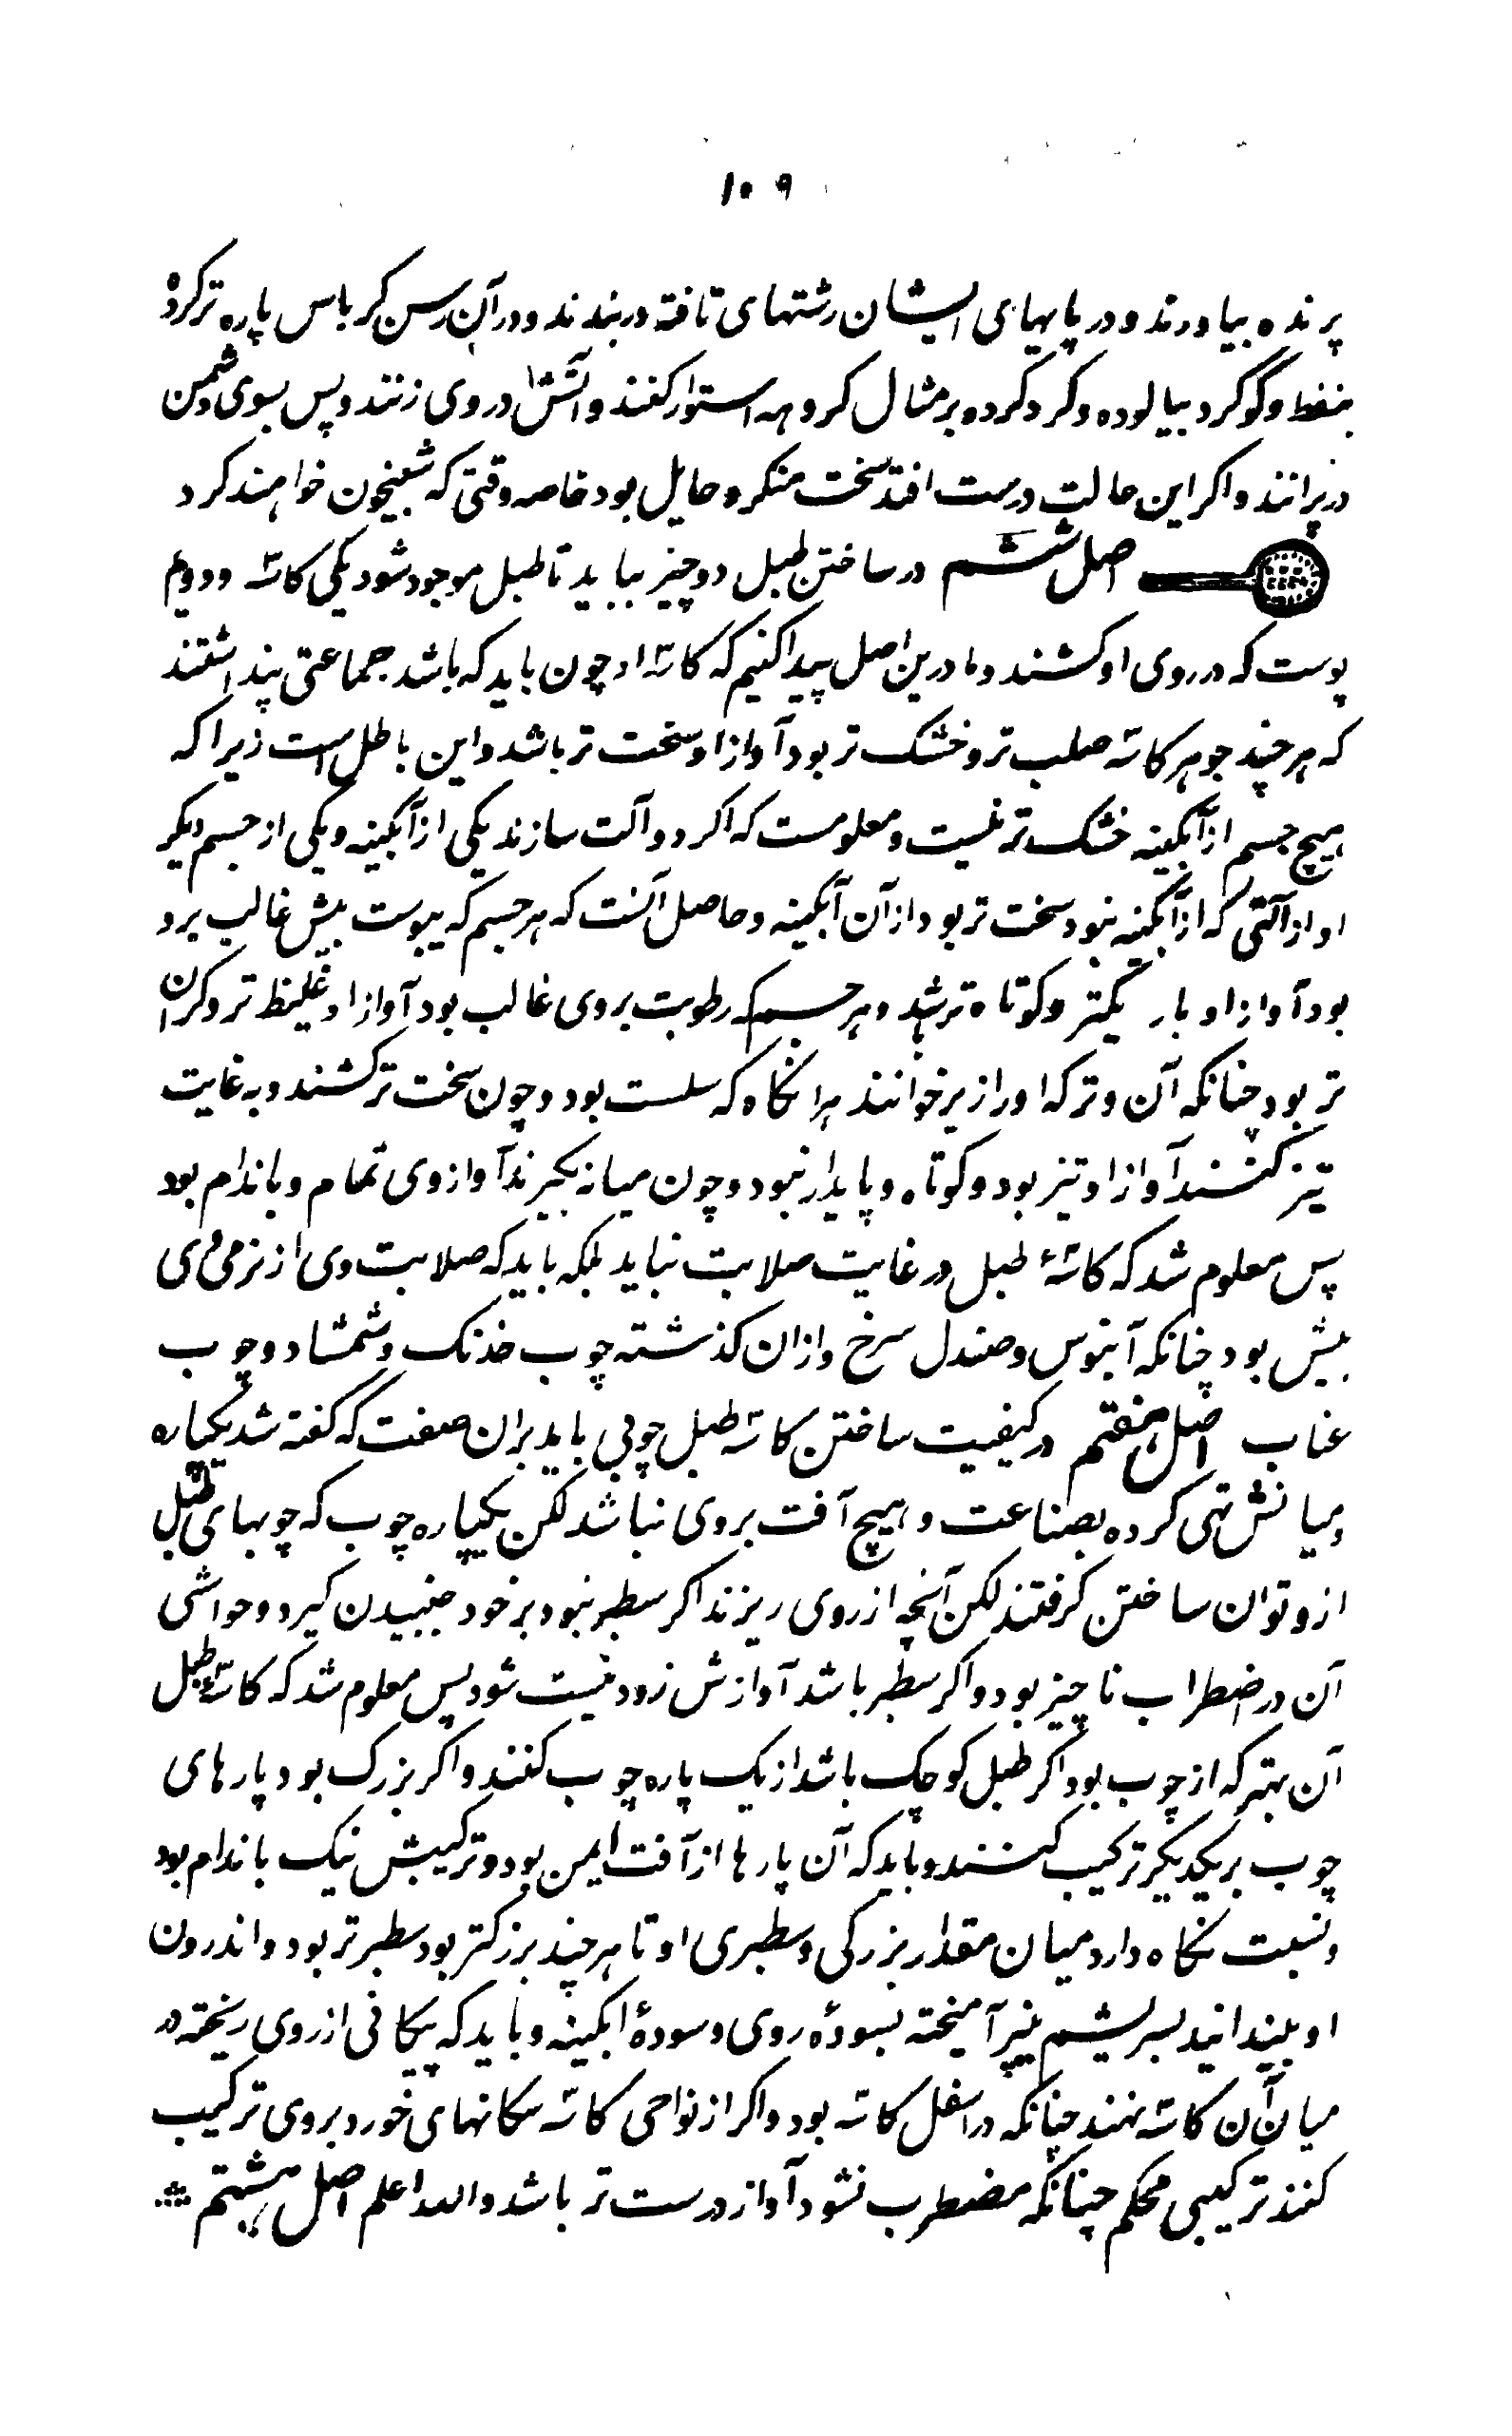 ۱۰۹
پرنده بیاورند و در پایهای ایشان رشتهای تافته دربندند و در آن رسن کرباس پاره تر کرده
بنفط و گوگرد بیالوده و کرد کرده بر مثال کروهه استوار کنند و آتش در وی زنند و پس بسوی دشمن
در پرانند و اکر این حالت درست افتد سخت منکر و حایل بود خاصه وقتی که شبیخون خواهند کرد
اصل ششم در ساختن طبل دو چیز بباید تا طبل موجود شود یکی کاسه و دویم
پوست که در روی او کشند و ما درین اصل پیدا کنیم که کاسه او چون باید که باشد جماعتی پنداشتند
که هر چند جوهر کاسه صلب تر و خشک تر بود آواز او سخت تر باشد و این باطل است زیرا که
هیچ جسم از آبکینه خشک تر نیست و معلومست که اکر دو آلت سازند یکی از آبکینه و یکی از جسم دیکر
اواز آلتی که از آبکینه نبود سخت تر بود از آن آبکینه و حاصل آنست که هر جسم که یبوست بیش غالب برو
بود آواز او باریکتر و کوتاه تر باشد و هر جسم که رطوبت بروی غالب بود آواز او غلیظ تر و کران
تر بود چنانکه آن وتر که او را زیر خوانند هر انکاه که سلست بود و چون سخت تر کشند و به غایت
تیز کنند آواز او تیز بود و کوتاه و پایدار نبود و چون میانه بکیرند آواز وی تمام و باندام بود
پس معلوم شد که کاسهٔ طبل در غایت صلابت نباید بلکه باید که صلابت وی از نرمی وی
بیش بود چنانکه آبنوس و صندل سرخ و ازان کذشته چوب خدنک و شمشاد و چوب
عناب اصل هفتم در کیفیت ساختن کاسه طبل چوبی باید بران صفت که گفته شد یکپاره
و میانش تهی کرده بصناعت و هیچ آفت بروی نباشد لکن یکپاره چوب که چوبهای طبل
ازو توان ساختن کرفتند لکن آنچه از روی ریزند اکر سطبر نبود بر خود جنبیدن کیرد و حواشی
آن در اضطراب ناچیز بود و اکر سطبر باشد آوازش زود نیست شود پس معلوم شد که کاسهٔ طبل
آن بهتر که از چوب بود اکر طبل کوچک باشد از یک پاره چوب کنند و اکر بزرک بود پارهای
چوب بر یکدیکر ترکیب کنند و باید که آن پارها از آفت ایمن بود و ترکیبش نیک باندام بود
و نسبت نکاه دارد میان مقدار بزرکی و سطبری او تا هر چند بزرکتر بود سطبر تر بود و اندرون
او بیندانید بسریشم پنیر آمیخته بسودهٔ روی و سودهٔ ابکینه و باید که پیکانی از روی ریخته در
میان آن کاسه نهند چنانکه در اسفل کاسه بود و اکر از نواحی کاسه مکانهای خورد بروی ترکیب
کنند ترکیبی محکم چنانکه مضطرب نشود آواز درست تر باشد و الله اعلم اصل هشتم